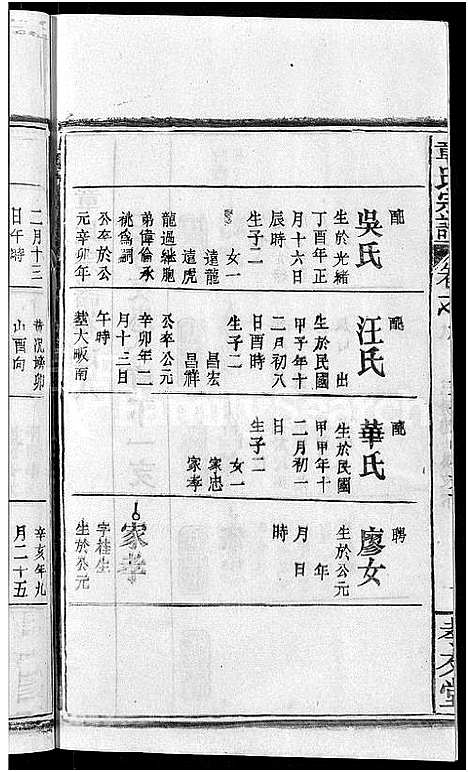 章氏宗譜
孝友堂
配
吳氏
生於光緒
丁酉年正
月十六日
辰時
生子二
女一
遠龍
遠虎
龍過繼胞
弟偉倫承
祧為嗣
公卒於公
元辛卯年
配
汪氏
出
生於民國
甲子年十
二月初八
日酉時
生子二
昌宏
昌祥
公卒公元
辛卯年二
月十三日
午時
墓大畈南
配
華氏
生於民國
甲甲年十
二月初一
生子二
女一
家忠
家孝
聘
廖女
生於公元
年
月日
時
家孝
字桂生
生於公元
二月十三
日午時
山酉向
辛亥年九
月二十五